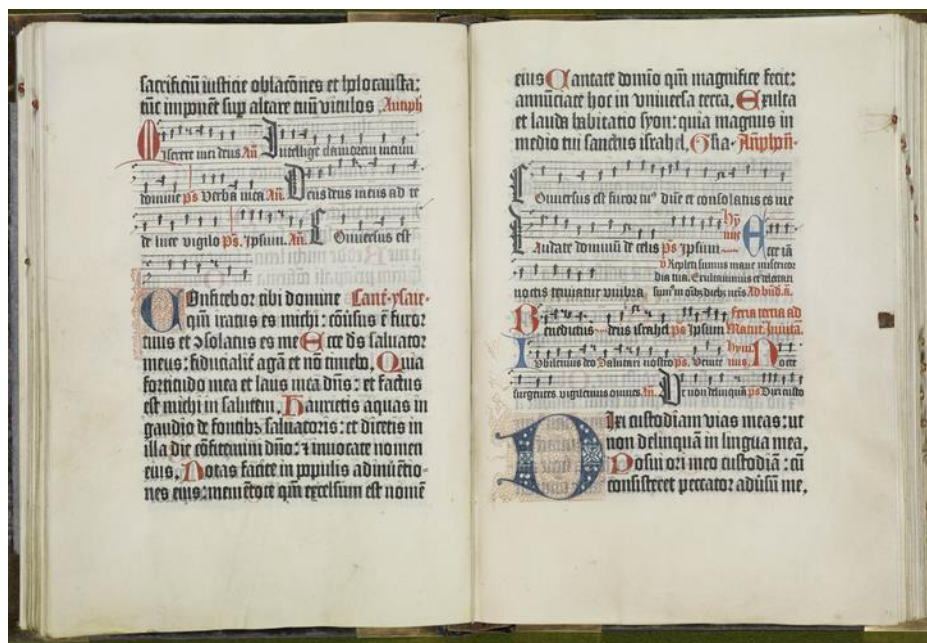 sacrificiū iusticie oblacōnes et holocausta:
tūc imponēt sup altare tuū vitulos. Antiph
Miserere mei deus Añ. Intellige clamorem meum
domine ps Verba mea Añ. Deus deus meus ad te
de luce vigilo ps. ipsum. Añ. Conuersus est
Confitebor tibi domine Cant. ysaie.
qm̄ iratus es michi: cōuersus ē furor
tuus et ↄsolatus es me Ecce dn̄s saluator
meus: fiducialit̄ agā et nō timebo. Quia
fortitudo mea et laus mea dn̄s: et factus
est michi in salutem. Haurietis aquas in
gaudio de fontibꝫ saluatoris: et dicetis in
illa die cōfitemini dn̄o: ⁊ inuocate nomen
eius. Notas facite in populis adinuētio-
nes eius: mementote qm̄ excelsum est nomē
eius Cantate domīo qm̄ magnifice fecit:
annūciate hoc in vniuersa terra. Exulta
et lauda habitatio syon: quia magnus in
medio tui sanctus israhel. Gl̄ia. An̄phon̄.
Conuersus est furor tuꝰ dn̄e et consolatus es me
Laudate dominū de celis ps ipsum hy
mē Ecce iā
v Repleti sumus mane misericor
dia tua. Exultauimus et delectati
noctis tenuatur vmbra sumꝰ in oībꝫ diebꝫ nr̄is Ad bn̄d. a.
Benedictus deus israhel ps Ipsum feria tercia ad
Matut. Inuita.
Iubilemus deo Salutari nostro ps. Venite hym
nus. Nocte
surgentes vigilemus omnes. Añ. Vt non delinquā ps Dixi custo
Dixi custodiam vias meas: ut
non delinquā in lingua mea.
Posui ori meo custodiā: cū
consisteret peccator aduersū me.